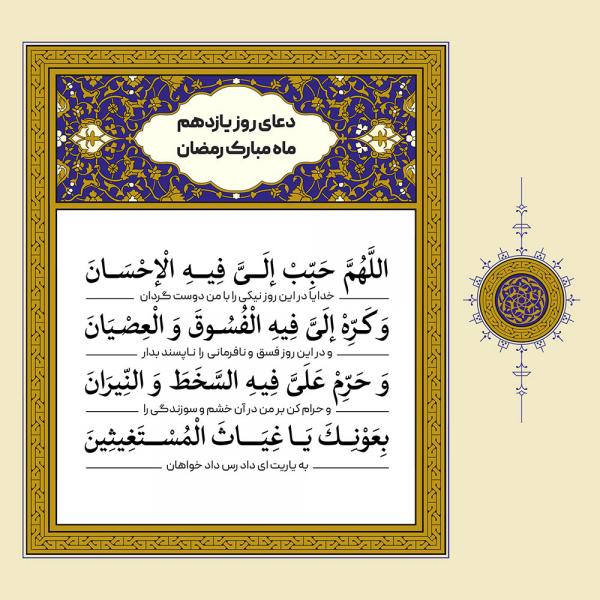 دعای روز یازدهم
ماه مبارک رمضان
اللَّهُمَّ حَبِّبْ إِلَيَّ فِيهِ الْإِحْسَانَ
خدایا در این روز نیکی را با من دوست گردان
وَ كَرِّهْ إِلَيَّ فِيهِ الْفُسُوقَ وَ الْعِصْيَانَ
و در این روز فسق و نافرمانی را ناپسند بدار
وَ حَرِّمْ عَلَيَّ فِيهِ السَّخَطَ وَ النِّيرَانَ
و حرام کن بر من در آن خشم و سوزندگی را
بِعَوْنِكَ يَا غِيَاثَ الْمُسْتَغِيثِينَ
به یاریت ای داد رس داد خواهان